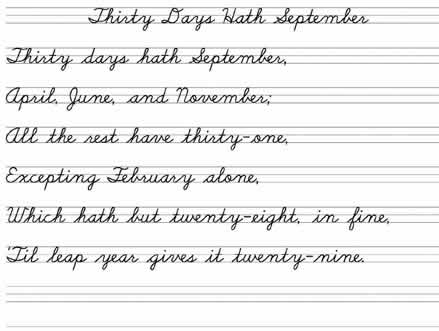 Thirty Days Hath September
Thirty days hath September,
April, June, and November;
All the rest have thirty-one,
Excepting February alone,
Which hath but twenty-eight, in fine,
'Til leap year gives it twenty-nine.